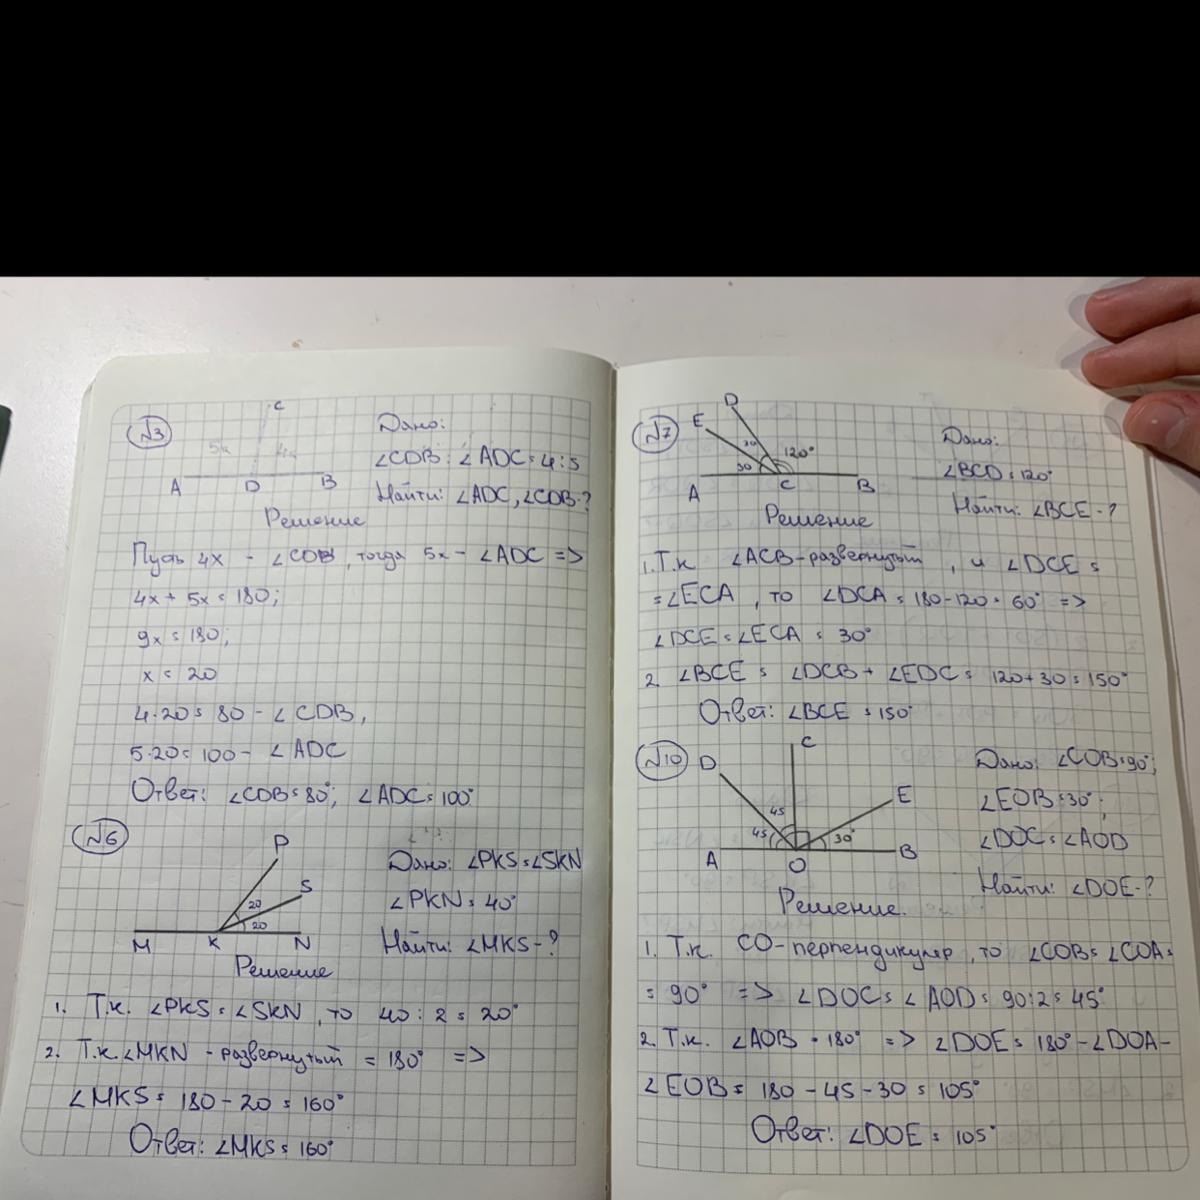 №3
C
5x 4x
A D B
Дано:
∠CDB : ∠ADC = 4:5
Найти: ∠ADC, ∠CDB-?
Решение
Пусть 4x - ∠CDB, тогда 5x - ∠ADC =>
4x + 5x = 180;
9x = 180;
x = 20
4·20 = 80 - ∠CDB,
5·20 = 100 - ∠ADC
Ответ: ∠CDB = 80°; ∠ADC = 100°
№6
P
S
20
20
M K N
Дано: ∠PKS = ∠SKN
∠PKN = 40°
Найти: ∠MKS - ?
Решение
1. Т.к. ∠PKS = ∠SKN, то 40 : 2 = 20°
2. Т.к. ∠MKN - развернутый = 180° =>
∠MKS = 180 - 20 = 160°
Ответ: ∠MKS = 160°
№7
D
E
30 120°
30
A C B
Дано:
∠BCD = 120°
Найти: ∠BCE - ?
Решение
1. Т.к ∠ACB - развернутый, и ∠DCE =
= ∠ECA, то ∠DCA = 180-120 = 60° =>
∠DCE = ∠ECA = 30°
2. ∠BCE = ∠DCB + ∠EDC = 120+30 = 150°
Ответ: ∠BCE = 150°
№10
C
D
E
45
45 30°
A O B
Дано: ∠COB = 90°;
∠EOB = 30°;
∠DOC = ∠AOD
Найти: ∠DOE - ?
Решение.
1. Т.к. CO - перпендикуляр, то ∠COB = ∠COA =
= 90° => ∠DOC = ∠AOD = 90:2 = 45°
2. Т.к. ∠AOB = 180° => ∠DOE = 180° - ∠DOA -
∠EOB = 180 - 45 - 30 = 105°
Ответ: ∠DOE = 105°